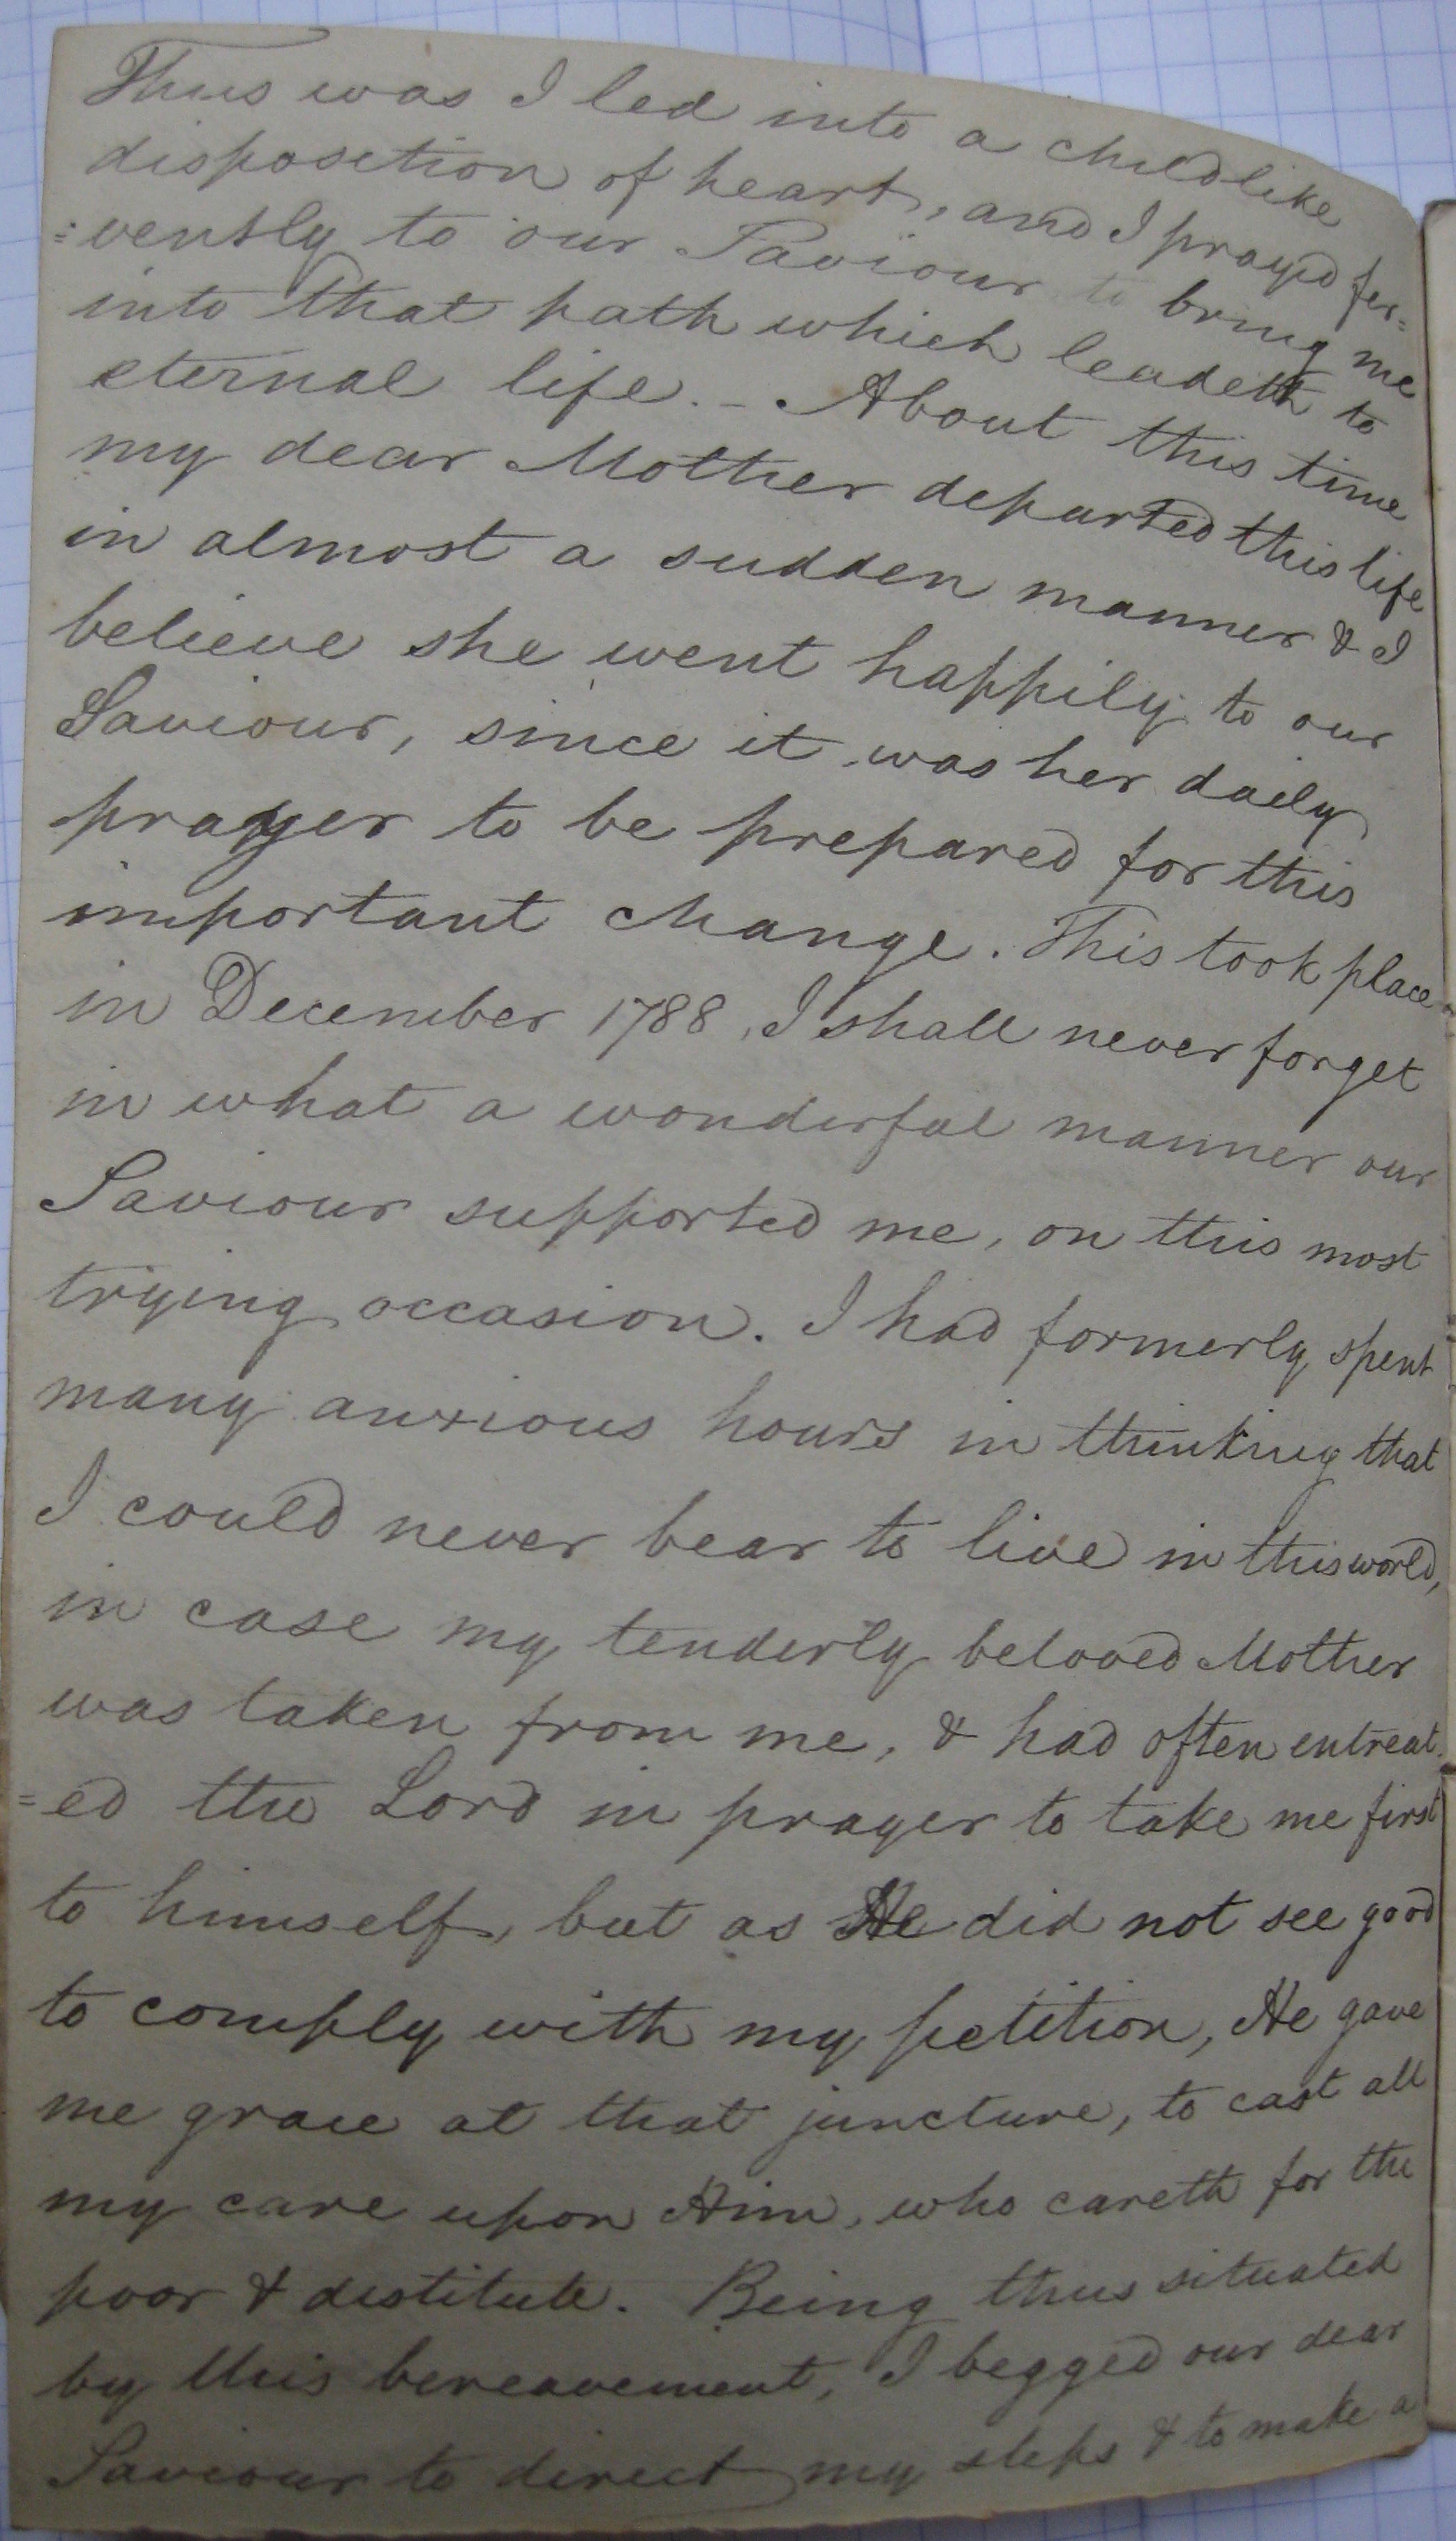 Thus was I led into a childlike
disposition of heart, and I prayed fer=
=vently to our Saviour to bring me
into that path which leadeth to
eternal life. - About this time
my dear Mother departed this life
in almost a sudden manner & I
believe she went happily to our
Saviour, since it was her daily
prayer to be prepared for this
important change. This took place
in December 1788, I shall never forget
in what a wonderful manner our
Saviour supported me, on this most
trying occasion. I had formerly spent
many anxious hours in thinking that
I could never bear to live in this world,
in case my tenderly beloved Mother
was taken from me, & had often entreat
=ed the Lord in prayer to take me first
to himself, but as He did not see good
to comply with my petition, He gave
me grace at that juncture, to cast all
my care upon Him, who careth for the
poor & destitute. Being thus situated
by this bereavement, I begged our dear
Saviour to direct my steps & to make a